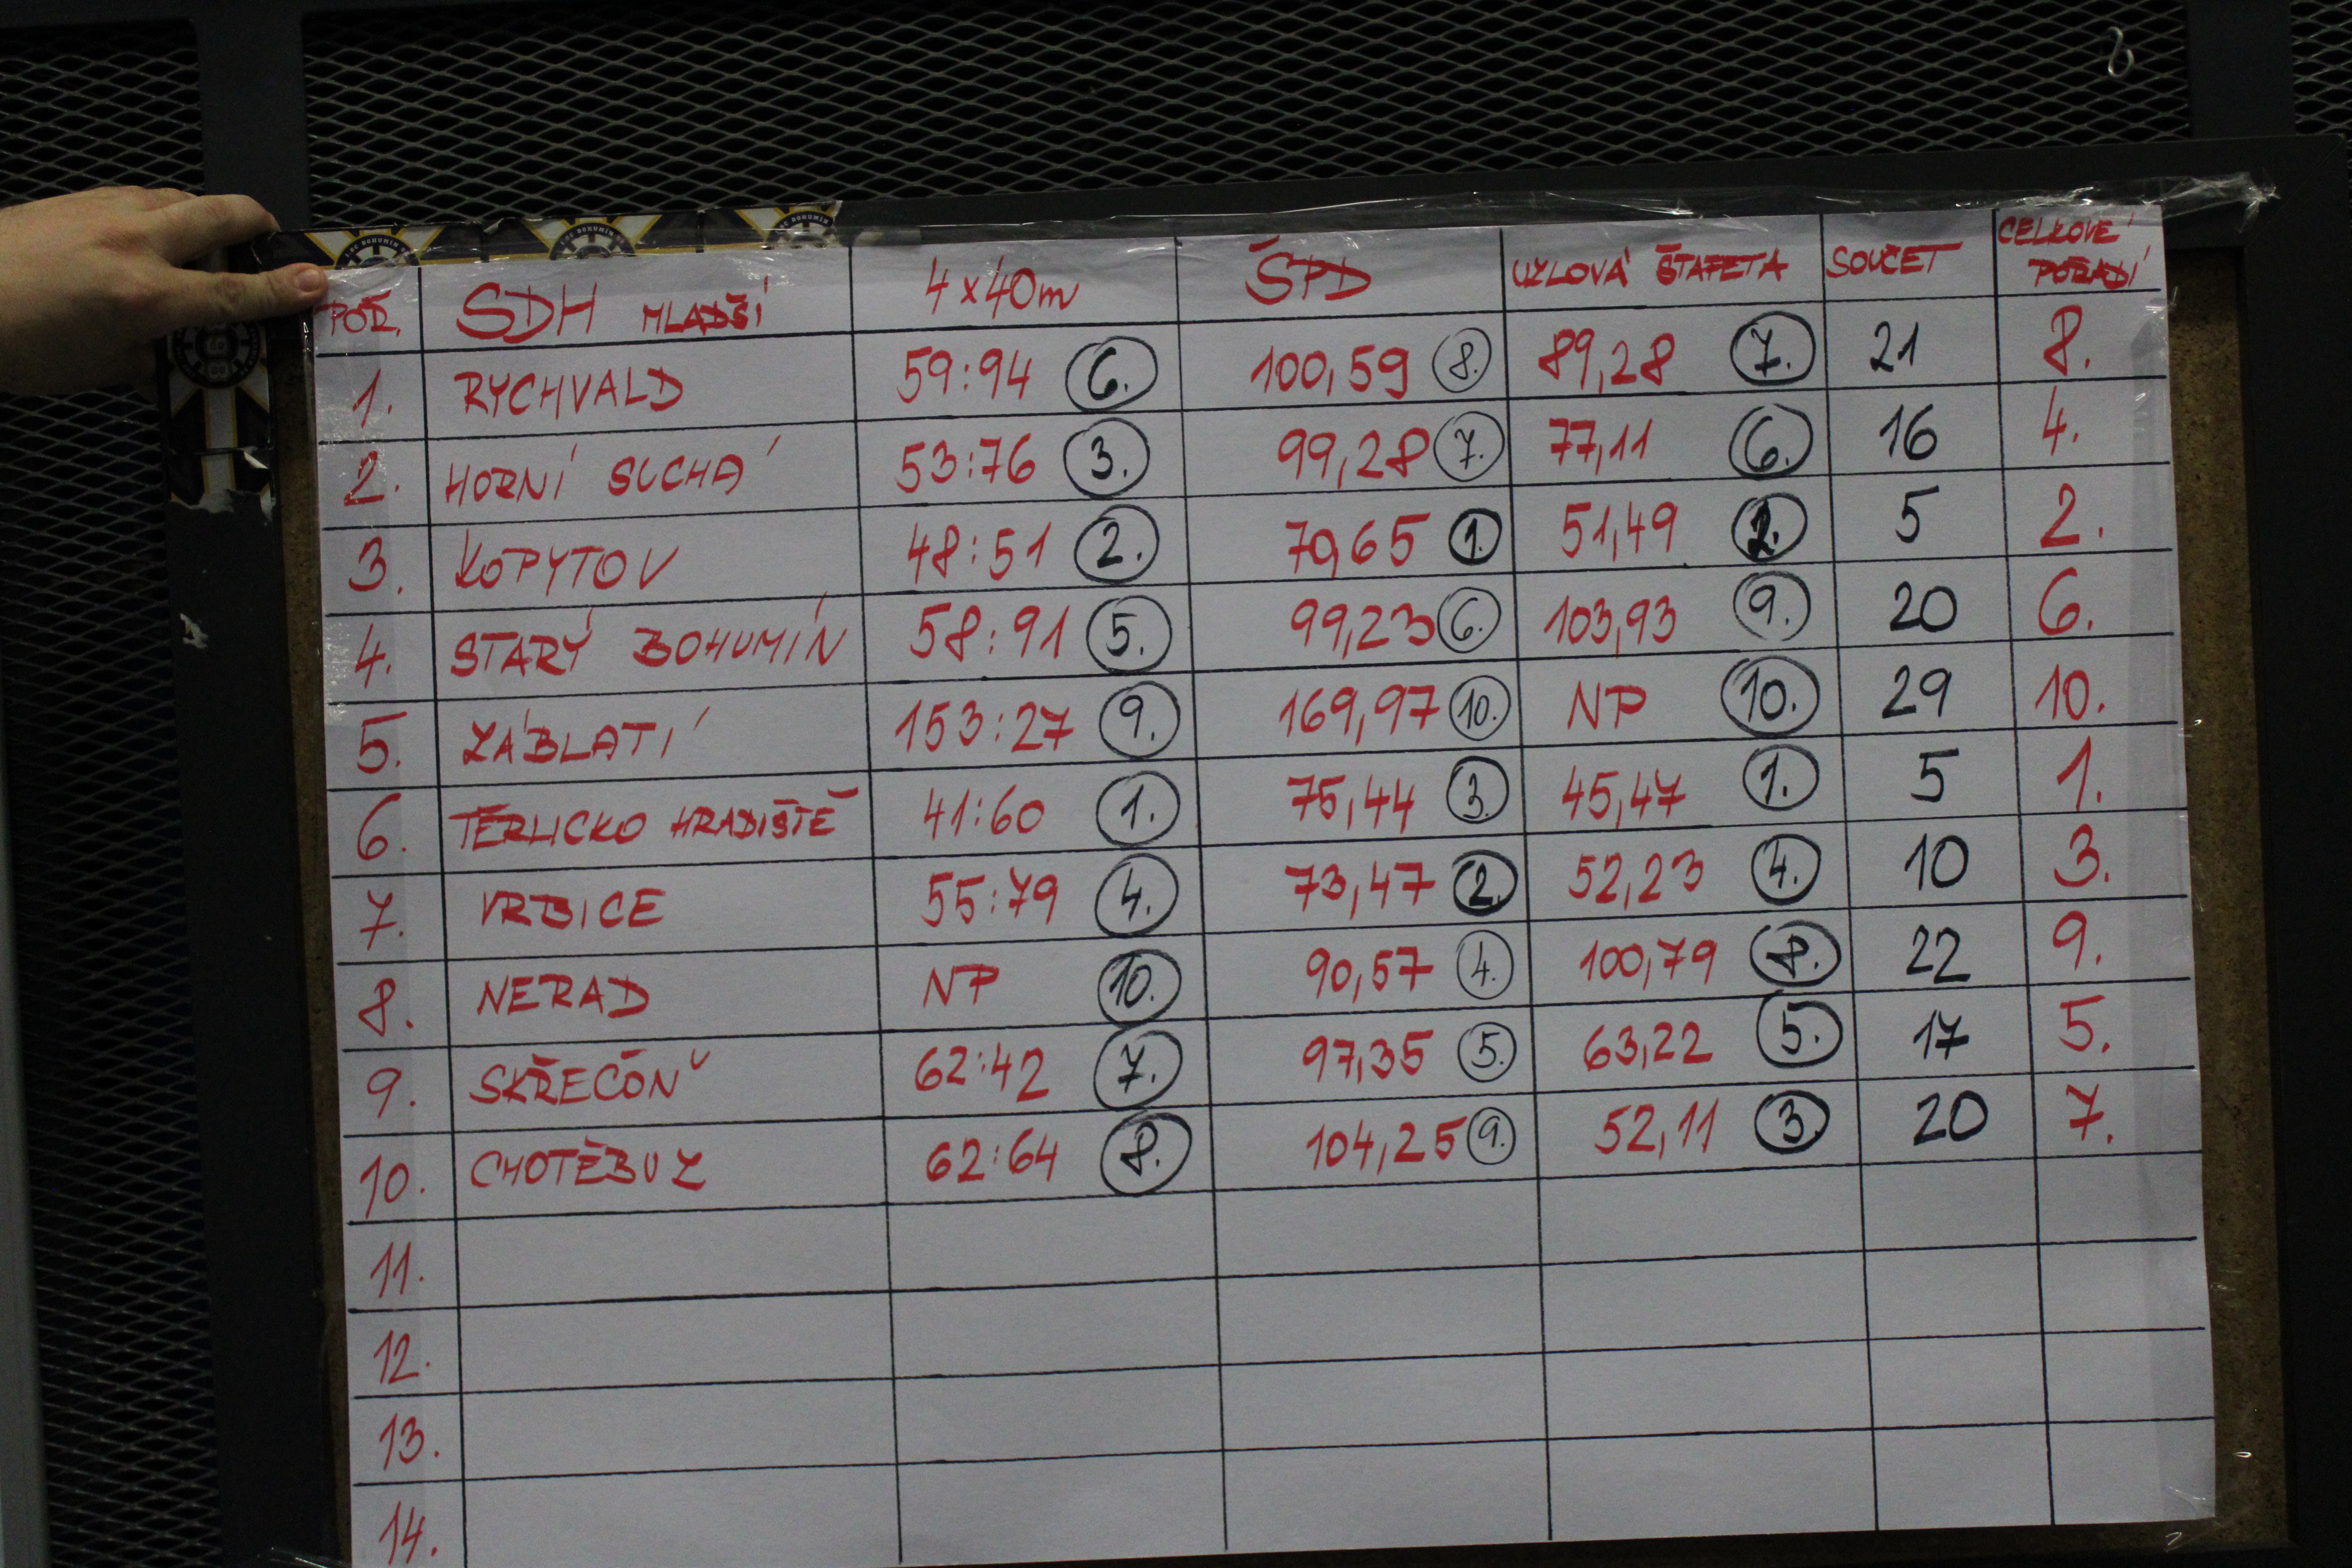 POŘ. SDH MLADŠÍ 4x40m ŠPD UZLOVÁ ŠTAFETA SOUČET CELKOVÉ POŘADÍ
1. RYCHVALD 59:94 6. 100,59 8. 89,28 7. 21 8.
2. HORNÍ SUCHÁ 53:76 3. 99,28 7. 77,11 6. 16 4.
3. KOPYTOV 48:51 2. 70,65 1. 51,49 2. 5 2.
4. STARÝ BOHUMÍN 58:91 5. 99,23 6. 103,93 9. 20 6.
5. ZÁBLATÍ 153:27 9. 169,97 10. NP 10. 29 10.
6. TĚRLICKO HRADIŠTĚ 41:60 1. 75,44 3. 45,47 1. 5 1.
7. VRBICE 55:79 4. 73,47 2. 52,23 4. 10 3.
8. NERAD NP 10. 90,57 4. 100,79 8. 22 9.
9. SKŘEČOŇ 62:42 7. 97,35 5. 63,22 5. 17 5.
10. CHOTĚBUZ 62:64 8. 104,25 9. 52,11 3. 20 7.
11.
12.
13.
14.